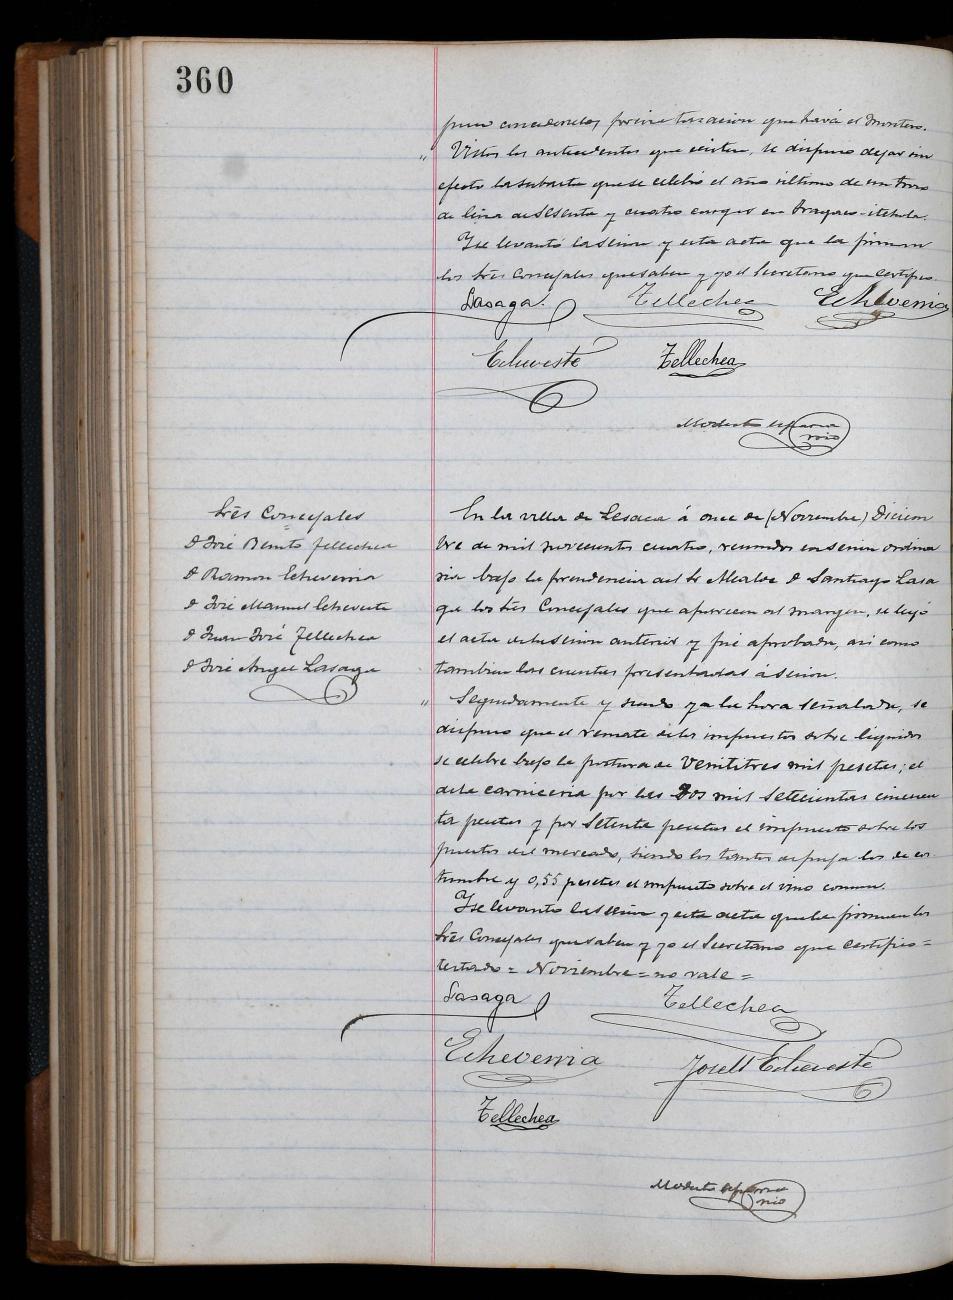 360
para concederles, previa tasacion que hará el montero.
" Vistos los antecedentes que existen, se dispuso dejar sin
efecto la subasta que se celebró el año último de un trozo
de lina de sesenta y cuatro cargas en
Y se levantó la sesion y esta acta que la firman
los Srēs Concejales que saben y yo el Secretario que certifico.
Lasaga. Tellechea Echeverria
Echeveste Tellechea
Modesto
Srēs Concejales
D José Benito Tellechea
D Ramon Echeverria
D José Manuel Echeveste
D Juan José Tellechea
D José Angel Lasaga
En la villa de Lesaca á once de (Noviembre) Diciem
bre de mil novecientos cuatro, reunidos en sesion ordina
ria bajo la presidencia del Sr Alcalde D Santiago Lasa
ga los Srēs Concejales que aparecen al margen, se leyó
el acta de la sesion anterior y fué aprobada, asi como
tambien las cuentas presentadas á sesion.
" Seguidamente y siendo ya la hora señalada, se
dispuso que el remate de los impuestos sobre liquidos
se celebre bajo la postura de Veintitres mil pesetas; el
de la carniceria por las Dos mil Setecientas cincuen
ta pesetas y por Setenta pesetas el impuesto sobre los
puestos del mercado, siendo los tantos de puja los de cos
tumbre y 0,55 pesetas el impuesto sobre el vino comun.
Y se levantó la sesion y esta acta que la firman los
Srēs Concejales que saben y yo el Secretario que certifico =
testado = Noviembre = no vale =
Lasaga Tellechea
Echeverria José M Echeveste
Tellechea
Modesto